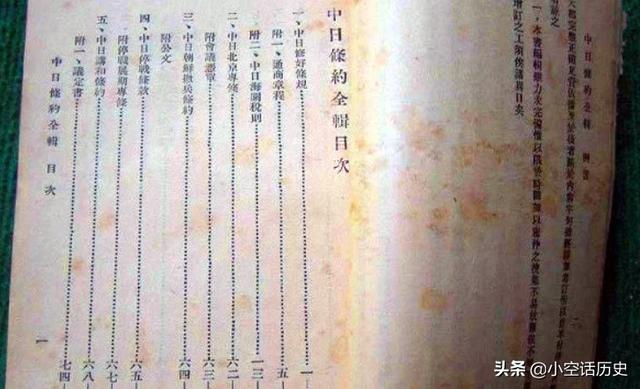 中日條約全輯 例言
一、本書編輯雖力求完備惟以限於時間加以密件之搜集不易
增訂之工須俟諸異日矣
中日條約全輯目次
一、中日修好條規……一
附一、通商章程……五
附二、中日海關稅則……一三
二、中日北京專條……六二
附會議憑單……六三
三、中日朝鮮撤兵條約……六四
附公文
四、中日停戰條款……六五
附停戰展期專條……六七
五、中日講和條約……六八
附一、議定書……七四
中日條約全輯 目次 一
头条 @小空话历史